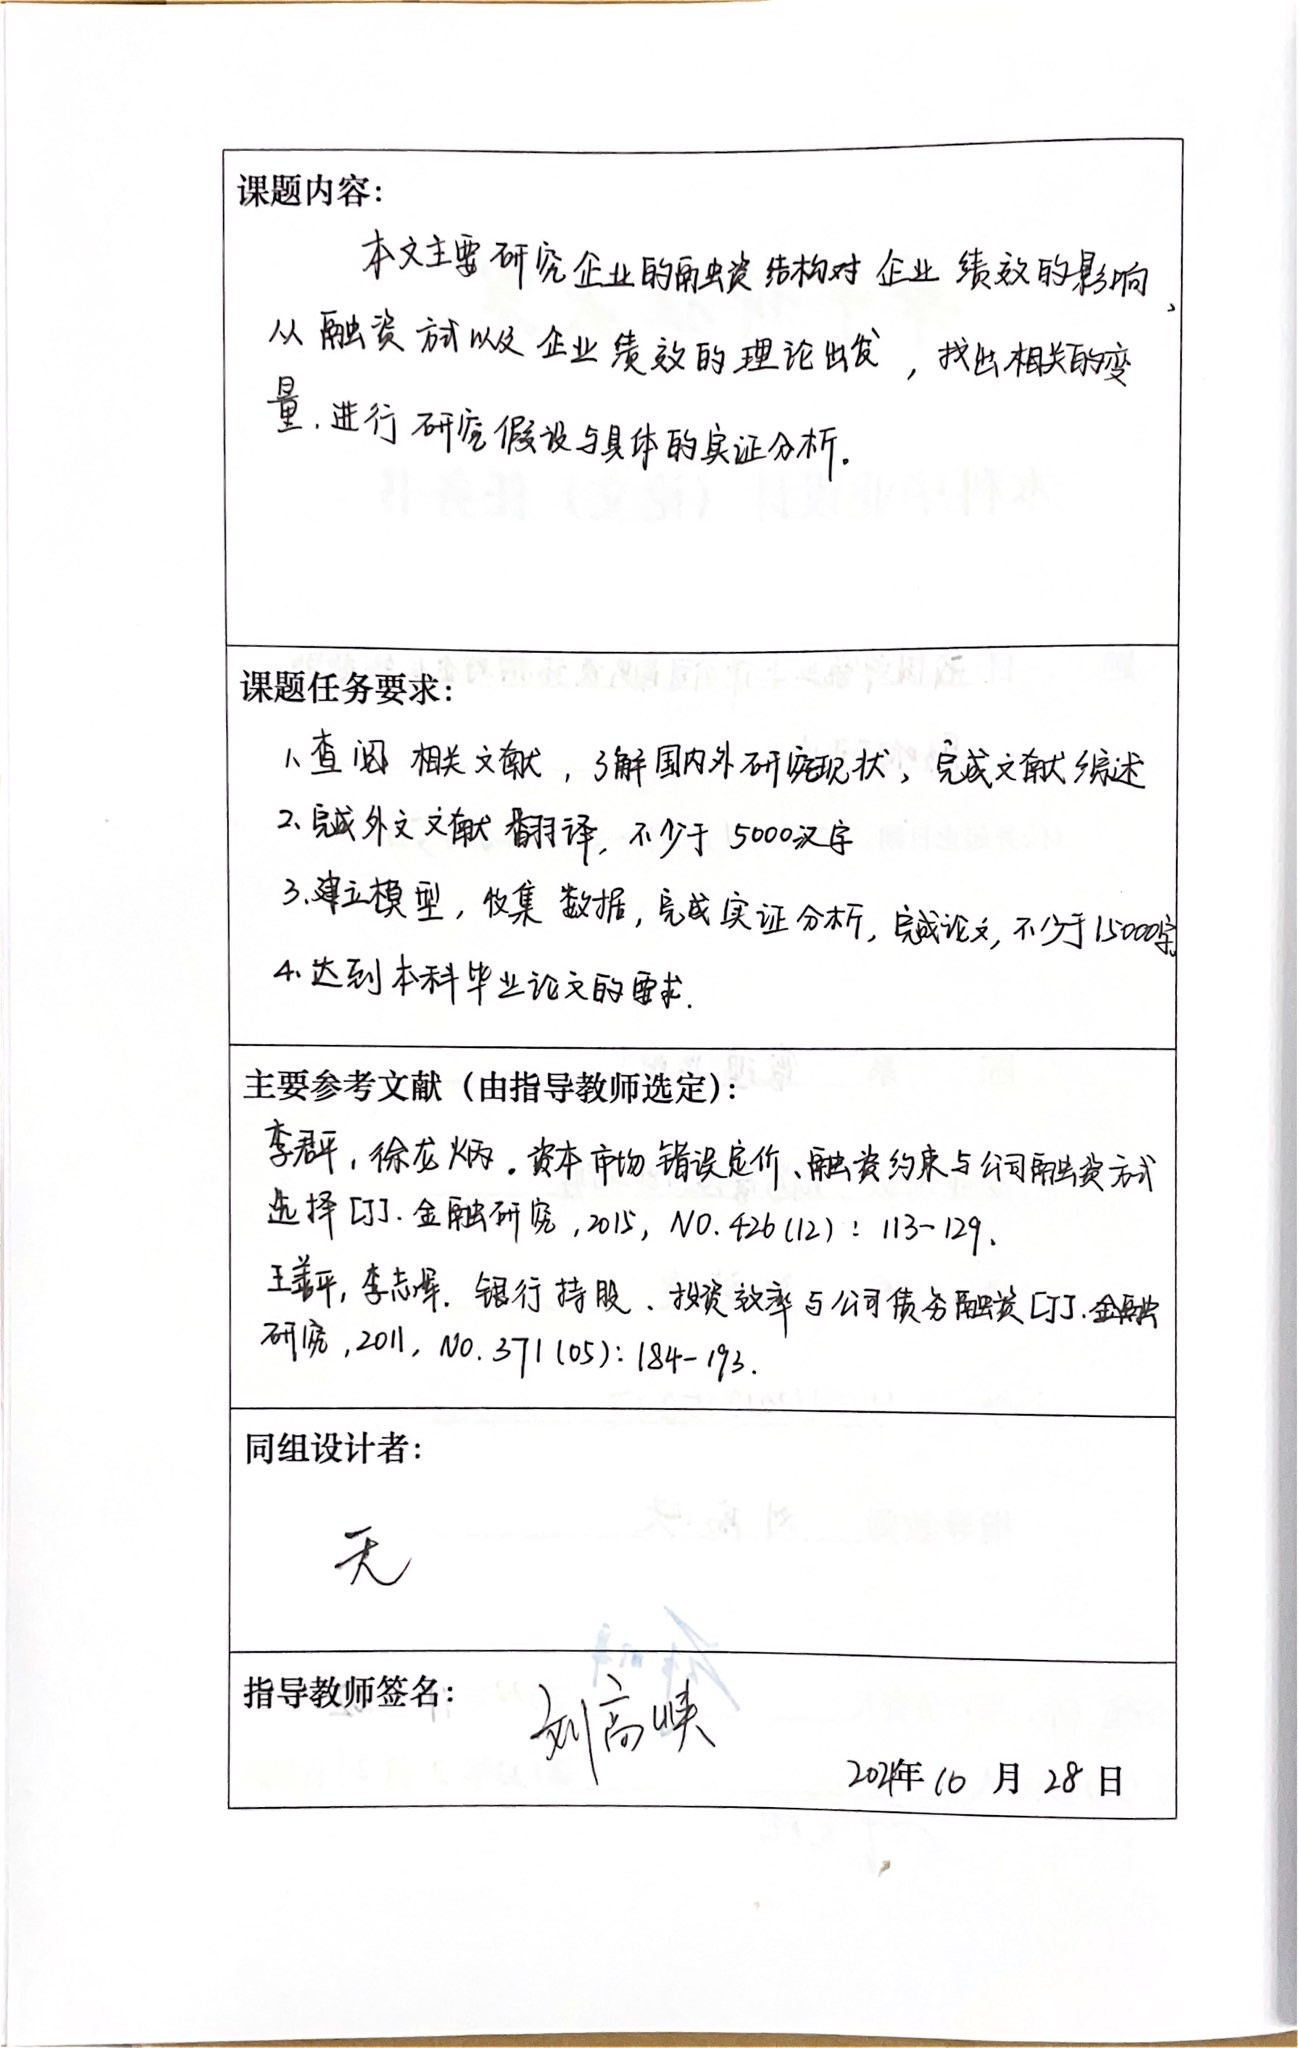 课题内容：
本文主要研究企业的融资结构对企业绩效的影响，
从融资方式以及企业绩效的理论出发，找出相关的变
量.进行研究假设与具体的实证分析。
课题任务要求：
1、查阅相关文献，了解国内外研究现状，完成文献综述
2、完成外文文献翻译，不少于5000汉字
3、建立模型，收集数据，完成实证分析，完成论文，不少于15000字。
4、达到本科毕业论文的要求.
主要参考文献（由指导教师选定）：
李君平，徐龙炳。资本市场错误定价、融资约束与公司融资方式
选择[J].金融研究，2015，NO.426(12)：113-129.
王善平，李志军.银行持股、投资效率与公司债务融资[J].金融
研究，2011，NO.371(05)：184-193.
同组设计者：
无
指导教师签名：
刘高峡
年 10 月 28 日